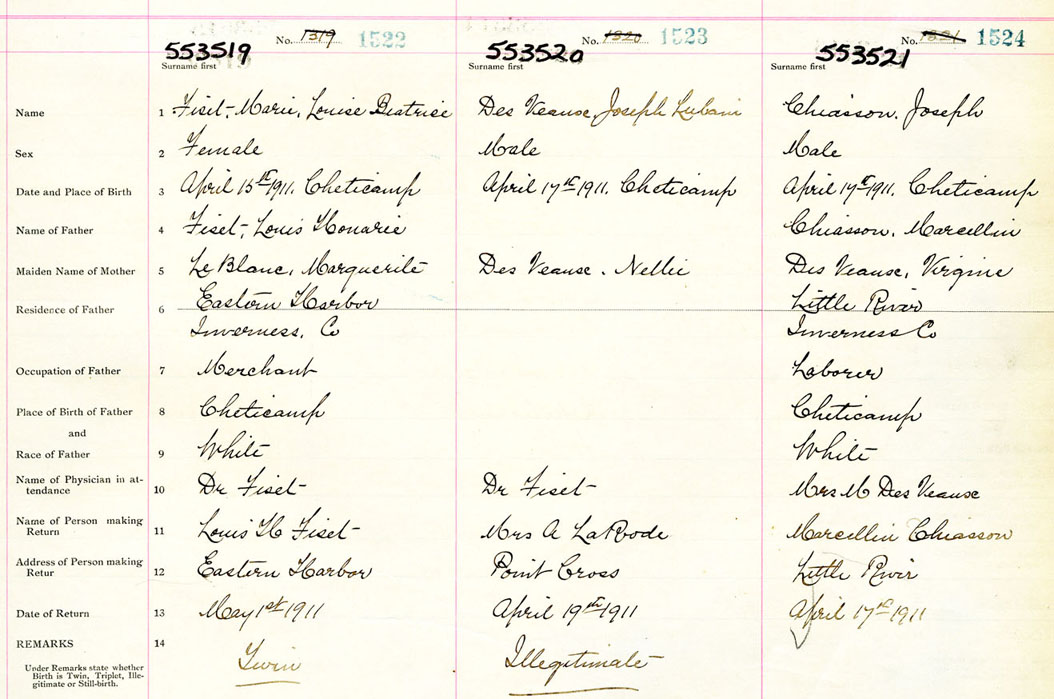 No. 1319 1522 No. 1320 1523 No. 1321 1524
553519 553520 553521
Surname first Surname first Surname first
Name 1 Fiset, Marie, Louise Beatrise Des Veause, Joseph Lubani Chiasson, Joseph
Sex 2 Female Male Male
Date and Place of Birth 3 April 15th 1911. Cheticamp April 17th 1911. Cheticamp April 17th 1911. Cheticamp
Name of Father 4 Fiset, Louis Honarie Chiasson, Marcellin
Maiden Name of Mother 5 Le Blanc, Marguerite Des Veause. Nellie Des Veause, Virgine
Residence of Father 6 Eastern Harbor Little River
Inverness, Co Inverness Co
Occupation of Father 7 Merchant Laborer
Place of Birth of Father 8 Cheticamp Cheticamp
and
Race of Father 9 White White
Name of Physician in at-
tendance 10 Dr Fiset Dr Fiset Mrs M Des Veause
Name of Person making
Return 11 Louis H Fiset Mrs A LaRode Marcellin Chiasson
Address of Person making
Retur 12 Eastern Harbor Point Cross Little River
Date of Return 13 May 1st 1911 April 19th 1911 April 17th 1911
REMARKS 14
Twin Illegitimate
Under Remarks state whether
Birth is Twin, Triplet, Ille-
gitimate or Still-birth.